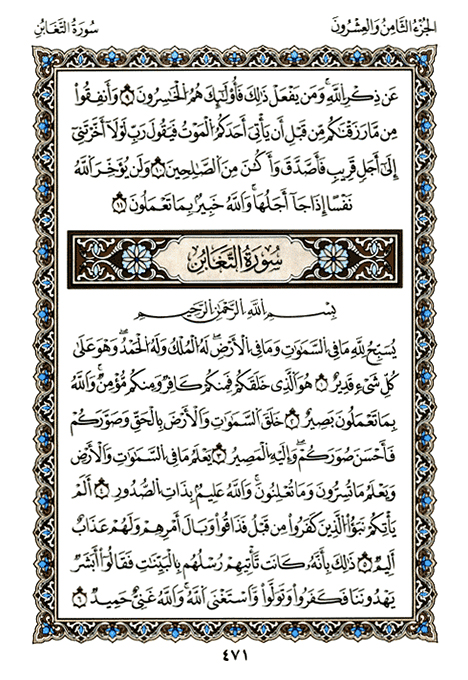 الجزء الثامن والعشرون سورة التغابن
عَن ذِكْرِ اللَّهِ وَمَن يَفْعَلْ ذَٰلِكَ فَأُولَٰئِكَ هُمُ الْخَاسِرُونَ ٩ وَأَنفِقُوا
مِن مَّا رَزَقْنَاكُم مِّن قَبْلِ أَن يَأْتِيَ أَحَدَكُمُ الْمَوْتُ فَيَقُولَ رَبِّ لَوْلَا أَخَّرْتَنِي
إِلَىٰ أَجَلٍ قَرِيبٍ فَأَصَّدَّقَ وَأَكُن مِّنَ الصَّالِحِينَ ١٠ وَلَن يُؤَخِّرَ اللَّهُ
نَفْسًا إِذَا جَاءَ أَجَلُهَا وَاللَّهُ خَبِيرٌ بِمَا تَعْمَلُونَ ١١
سُورَةُ التَّغَابُنِ
بِسْمِ اللَّهِ الرَّحْمَٰنِ الرَّحِيمِ
يُسَبِّحُ لِلَّهِ مَا فِي السَّمَاوَاتِ وَمَا فِي الْأَرْضِ لَهُ الْمُلْكُ وَلَهُ الْحَمْدُ وَهُوَ عَلَىٰ
كُلِّ شَيْءٍ قَدِيرٌ ١ هُوَ الَّذِي خَلَقَكُمْ فَمِنكُمْ كَافِرٌ وَمِنكُم مُّؤْمِنٌ وَاللَّهُ
بِمَا تَعْمَلُونَ بَصِيرٌ ٢ خَلَقَ السَّمَاوَاتِ وَالْأَرْضَ بِالْحَقِّ وَصَوَّرَكُمْ
فَأَحْسَنَ صُوَرَكُمْ وَإِلَيْهِ الْمَصِيرُ ٣ يَعْلَمُ مَا فِي السَّمَاوَاتِ وَالْأَرْضِ
وَيَعْلَمُ مَا تُسِرُّونَ وَمَا تُعْلِنُونَ وَاللَّهُ عَلِيمٌ بِذَاتِ الصُّدُورِ ٤ أَلَمْ
يَأْتِكُمْ نَبَؤُا الَّذِينَ كَفَرُوا مِن قَبْلُ فَذَاقُوا وَبَالَ أَمْرِهِمْ وَلَهُمْ عَذَابٌ
أَلِيمٌ ٥ ذَٰلِكَ بِأَنَّهُ كَانَت تَّأْتِيهِمْ رُسُلُهُم بِالْبَيِّنَاتِ فَقَالُوا أَبَشَرٌ
يَهْدُونَنَا فَكَفَرُوا وَتَوَلَّوا وَّاسْتَغْنَى اللَّهُ وَاللَّهُ غَنِيٌّ حَمِيدٌ ٦
٤٧١